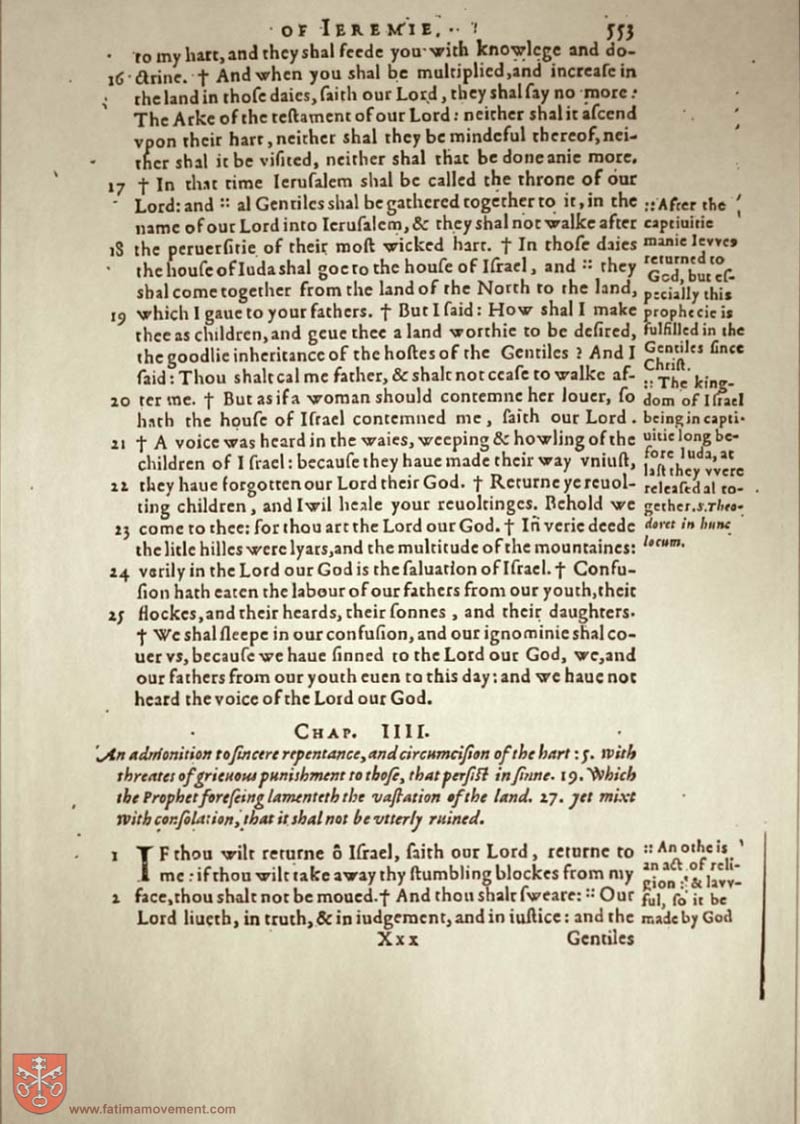 OF IEREMIE. 553
to my hart, and they shal feede you with knowlege and do-
16 ctrine. † And when you shal be multiplied, and increase in
the land in those daies, saith our Lord, they shal say no more:
The Arke of the testament of our Lord: neither shal it ascend
vpon their hart, neither shal they be mindeful thereof, nei-
ther shal it be visited, neither shal that be done anie more.
17 † In that time Ierusalem shal be called the throne of our
Lord: and :: al Gentiles shal be gathered together to it, in the
name of our Lord into Ierusalem, & they shal not walke after
18 the peruersitie of their most wicked hart. † In those daies
the house of Iuda shal goe to the house of Israel, and :: they
shal come together from the land of the North to the land,
19 which I gaue to your fathers. † But I said: How shal I make
thee as children, and geue thee a land worthie to be desired,
the goodlie inheritance of the hostes of the Gentiles? And I
said: Thou shalt cal me father, & shalt not cease to walke af-
20 ter me. † But as if a woman should contemne her louer, so
hath the house of Israel contemned me, saith our Lord.
21 † A voice was heard in the waies, weeping & howling of the
children of Israel: because they haue made their way vniust,
22 they haue forgotten our Lord their God. † Returne ye reuol-
ting children, and I wil heale your reuoltinges. Behold we
23 come to thee: for thou art the Lord our God. † In verie deede
the litle hilles were lyars, and the multitude of the mountaines:
24 verily in the Lord our God is the saluation of Israel. † Confu-
sion hath eaten the labour of our fathers from our youth, their
25 flockes, and their heards, their sonnes, and their daughters.
† We shal sleepe in our confusion, and our ignominie shal co-
uer vs, because we haue sinned to the Lord our God, we, and
our fathers from our youth euen to this day: and we haue not
heard the voice of the Lord our God.
:: After the
captiuitie
manie Iewes
returned to
God, but es-
pecially this
prophecie is
fulfilled in the
Gentiles since
Christ.
:: The king-
dom of Israel
being in capti-
uitie long be-
fore Iuda, at
last they vvere
released al to-
gether. S. Theo-
doret in hunc
locum.
CHAP. IIII.
An admonition to sincere repentance, and circumcision of the hart: 5. with
threates of grieuous punishment to those, that persist in sinne. 19. Which
the Prophet foreseing lamenteth the vastation of the land. 27. yet mixt
with consolation, that it shal not be vtterly ruined.
1 IF thou wilt returne ô Israel, saith our Lord, returne to
me: if thou wilt take away thy stumbling blockes from my
2 face, thou shalt not be moued. † And thou shalt sweare: :: Our
Lord liueth, in truth, & in iudgement, and in iustice: and the
:: An othe is
an act of reli-
gion: & lavv-
ful, so it be
made by God
Xxx Gentiles
www.fatimamovement.com